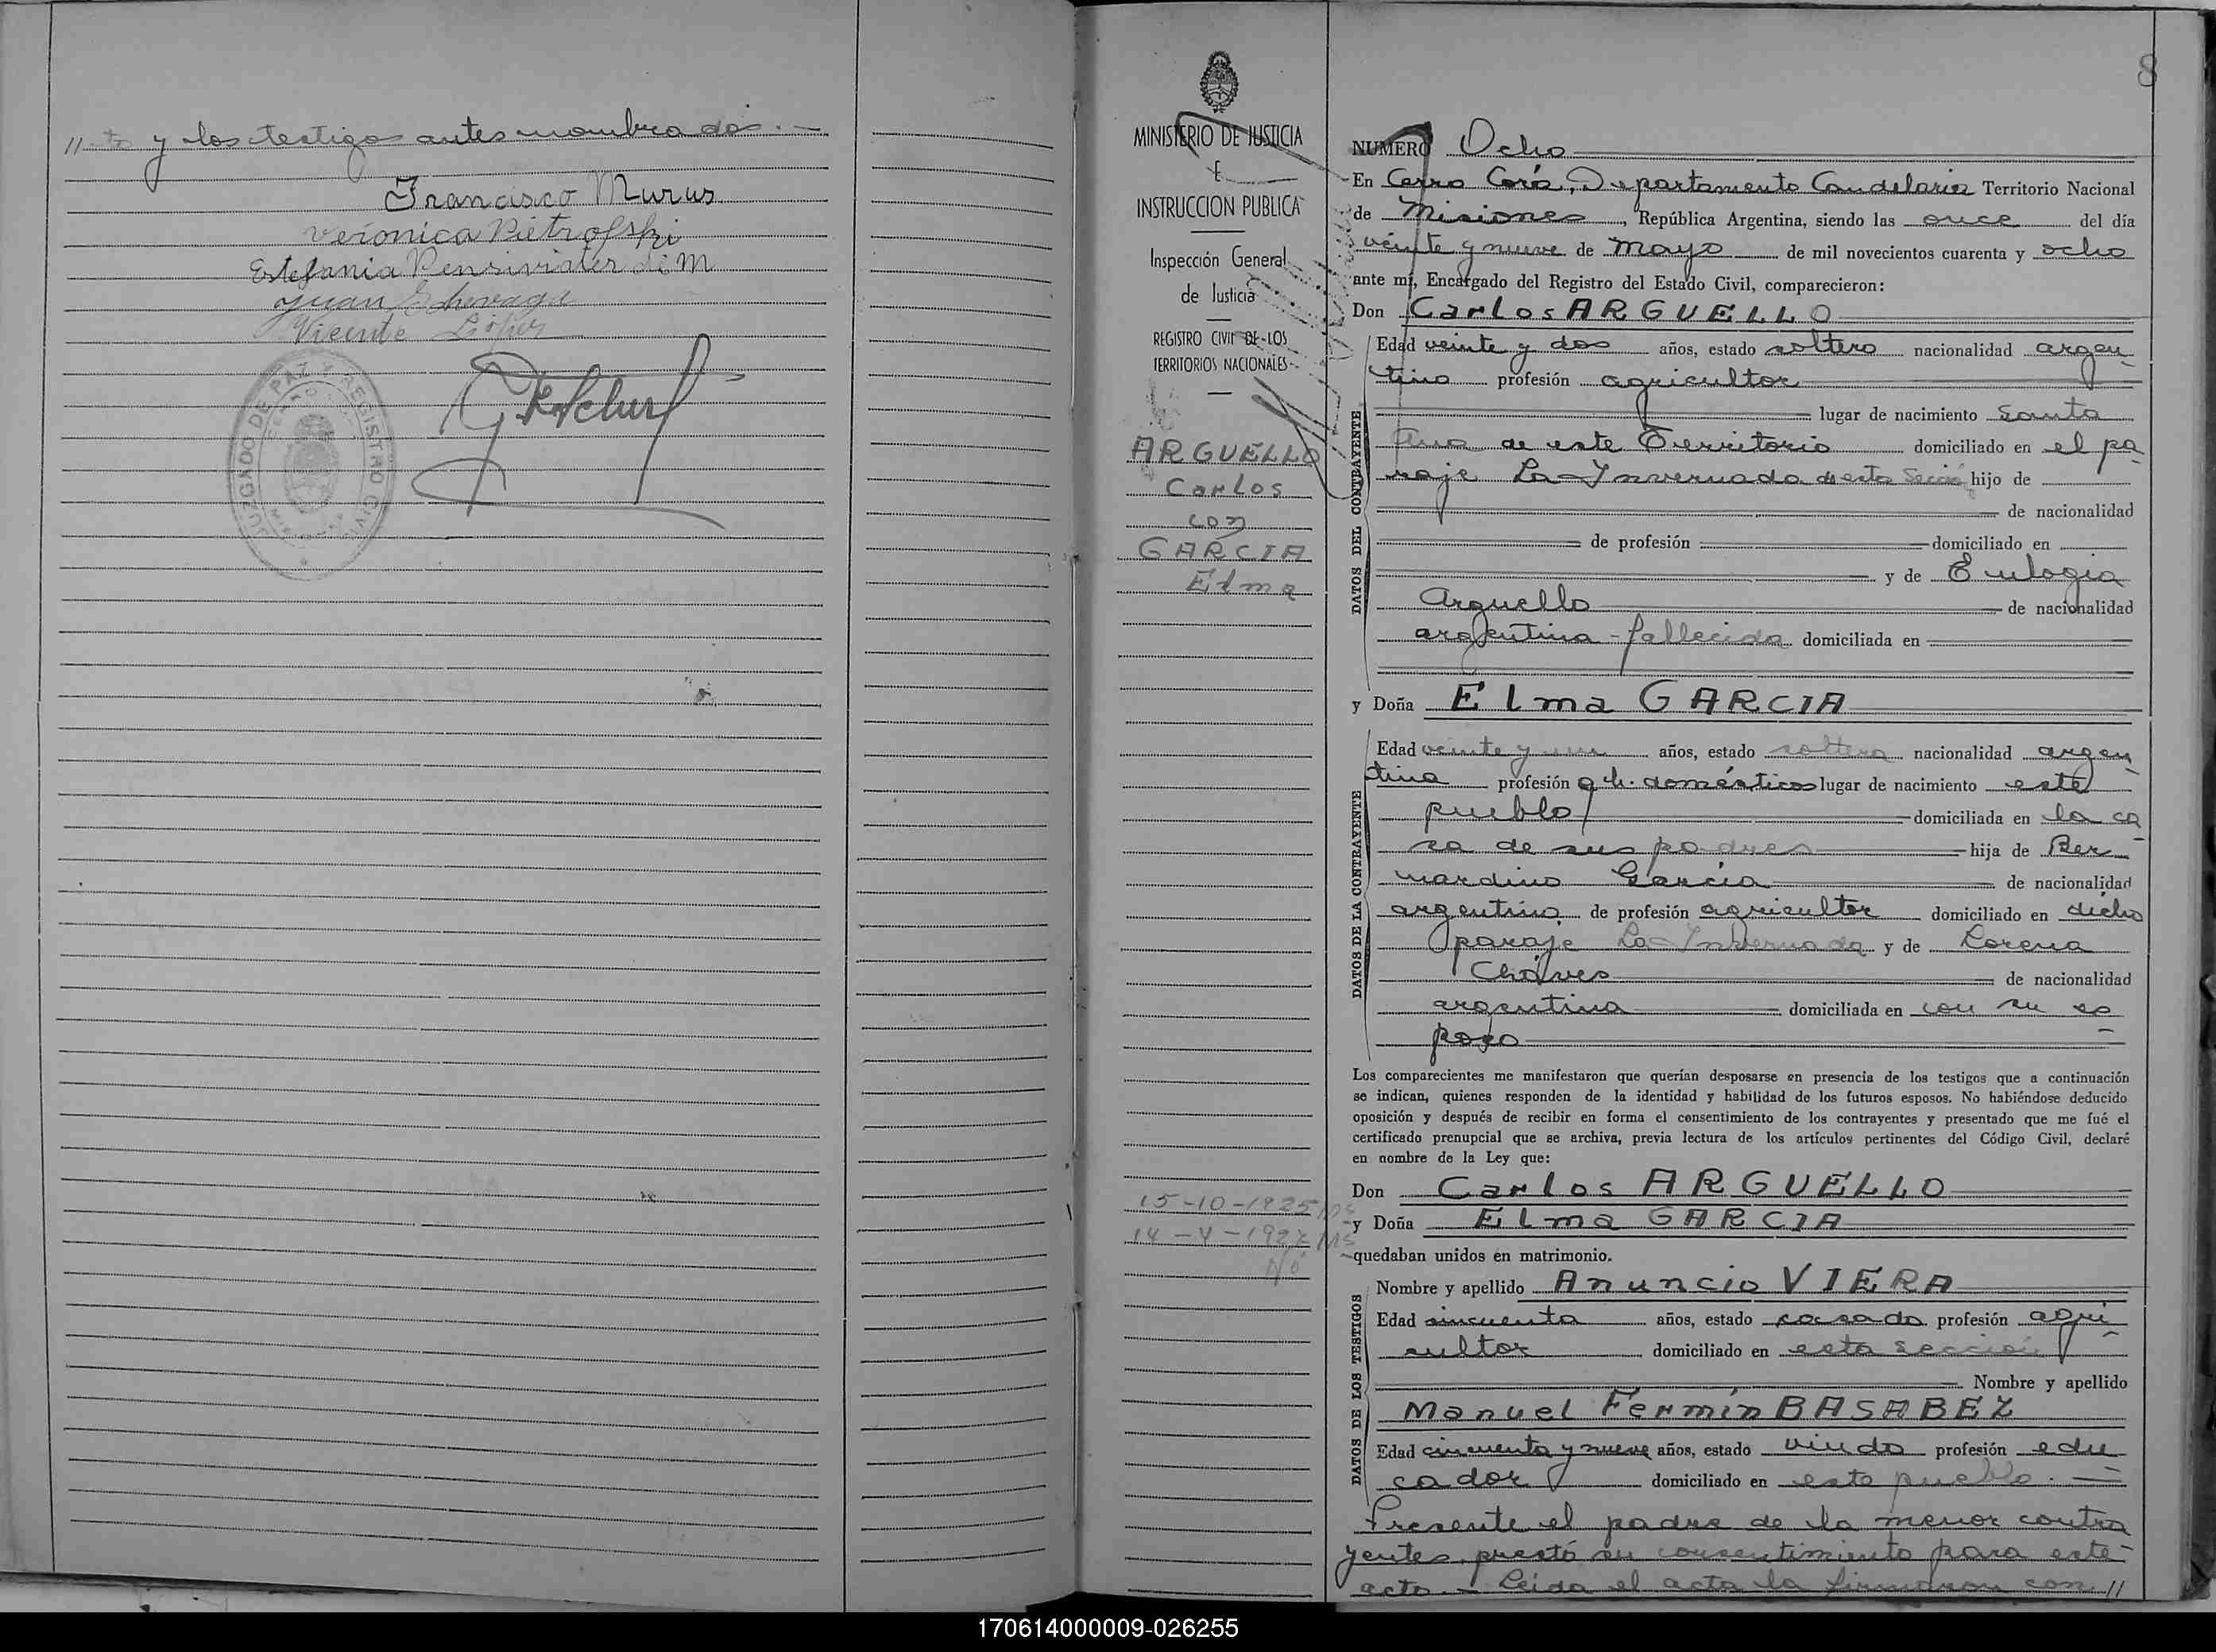 y los testigos antes nombrados.-
Francisco Murus
Verónica Pietrofski
Estefania
Juan
Vicente López
JUZGADO DE PAZ Y REGISTRO CIVIL
8
MINISTERIO DE JUSTICIA
E
INSTRUCCION PUBLICA
Inspección General
de Justicia
REGISTRO CIVIL DE LOS
TERRITORIOS NACIONALES
ARGUELLO
Carlos
con
GARCIA
Elma
15-10-1925
14-4-192
No
NUMERO Ocho
En Cerro Corá, Departamento Candelaria Territorio Nacional
de Misiones, República Argentina, siendo las once del día
veinte y nueve de mayo de mil novecientos cuarenta y ocho
ante mí, Encargado del Registro del Estado Civil, comparecieron:
Don Carlos ARGUELLO
Edad veinte y dos años, estado soltero nacionalidad argen-
tino profesión agricultor
lugar de nacimiento Santa
Ana de este Territorio domiciliado en el pa-
raje La Invernada de esta Secció hijo de
de nacionalidad
de profesión domiciliado en
y de Eulogia
Arguello de nacionalidad
argentina - fallecida domiciliada en
DATOS DEL CONTRAYENTE
y Doña Elma GARCIA
Edad veinte y un años, estado soltera nacionalidad argen-
tina profesión q.h. domésticos lugar de nacimiento este
pueblo domiciliada en la ca-
sa de sus padres hija de Ber-
nardino García de nacionalidad
argentino de profesión agricultor domiciliado en dicho
paraje La Invernada y de Lorena
Cháves de nacionalidad
argentina domiciliada en con su es-
poso
DATOS DE LA CONTRAYENTE
Los comparecientes me manifestaron que querían desposarse en presencia de los testigos que a continuación
se indican, quienes responden de la identidad y habilidad de los futuros esposos. No habiéndose deducido
oposición y después de recibir en forma el consentimiento de los contrayentes y presentado que me fué el
certificado prenupcial que se archiva, previa lectura de los artículos pertinentes del Código Civil, declaré
en nombre de la Ley que:
Don Carlos ARGUELLO
y Doña Elma GARCIA
quedaban unidos en matrimonio.
Nombre y apellido Anuncio VIERA
Edad cincuenta años, estado casado profesión agri-
cultor domiciliado en esta sección
Nombre y apellido
Manuel Fermín BASABEZ
Edad cincuenta y nueve años, estado viudo profesión edu-
cador domiciliado en este pueblo.
DATOS DE LOS TESTIGOS
Presente el padre de la menor contra-
yentes, prestó su consentimiento para este
acto.- Leida el acta la firmaron con //
170614000009-026255